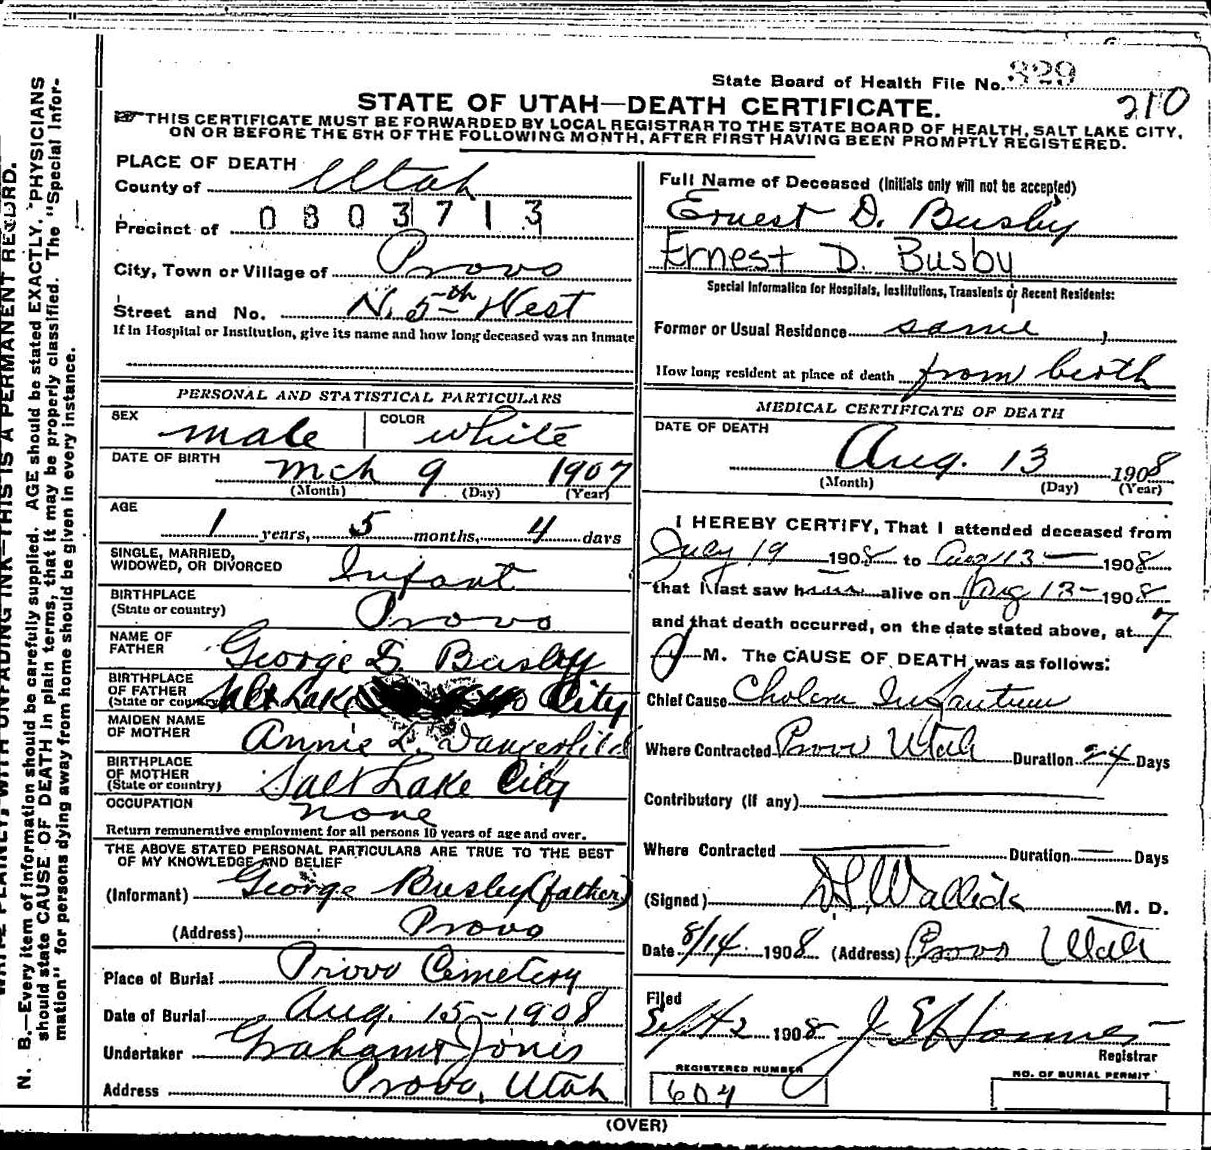 State Board of Health File No. 329
210
STATE OF UTAH—DEATH CERTIFICATE.
THIS CERTIFICATE MUST BE FORWARDED BY LOCAL REGISTRAR TO THE STATE BOARD OF HEALTH, SALT LAKE CITY,
ON OR BEFORE THE 5TH OF THE FOLLOWING MONTH, AFTER FIRST HAVING BEEN PROMPTLY REGISTERED.
PLACE OF DEATH
County of Utah
0803713
Precinct of
City, Town or Village of Provo
Street and No. N. 5th West
If in Hospital or Institution, give its name and how long deceased was an Inmate
PERSONAL AND STATISTICAL PARTICULARS
SEX male COLOR white
DATE OF BIRTH mch 9 1907
(Month) (Day) (Year)
AGE
1 years, 5 months, 4 days
SINGLE, MARRIED,
WIDOWED, OR DIVORCED Infant
BIRTHPLACE
(State or country) Provo
NAME OF
FATHER George D. Busby
BIRTHPLACE
OF FATHER
(State or country) Salt Lake City
MAIDEN NAME
OF MOTHER Annie L. Dangerfield
BIRTHPLACE
OF MOTHER
(State or country) Salt Lake City
OCCUPATION none
Return remunerative employment for all persons 10 years of age and over.
THE ABOVE STATED PERSONAL PARTICULARS ARE TRUE TO THE BEST
OF MY KNOWLEDGE AND BELIEF
(Informant) George Busby (father)
(Address) Provo
Place of Burial Provo Cemetery
Date of Burial Aug. 15-1908
Undertaker Graham & Jones
Address Provo, Utah
Full Name of Deceased (Initials only will not be accepted)
Ernest D. Busby
Ernest D. Busby
Special Information for Hospitals, Institutions, Transients or Recent Residents:
Former or Usual Residence same
How long resident at place of death from birth
MEDICAL CERTIFICATE OF DEATH
DATE OF DEATH
Aug. 13 1908
(Month) (Day) (Year)
I HEREBY CERTIFY, That I attended deceased from
July 19 1908 to Aug 13 — 1908
that I last saw him alive on Aug 13 - 1908
and that death occurred, on the date stated above, at 7
M. The CAUSE OF DEATH was as follows:
Chief Cause Cholera Infantum
Where Contracted Provo Utah Duration 24 Days
Contributory (if any)
Where Contracted Duration — Days
(Signed) Wallick M. D.
Date 8/14 1908 (Address) Provo Utah
Filed
Sept 2 1908 Registrar
REGISTERED NUMBER
604
NO. OF BURIAL PERMIT
(OVER)
WRITE PLAINLY, WITH UNFADING INK—THIS IS A PERMANENT RECORD.
N. B.—Every item of information should be carefully supplied. AGE should be stated EXACTLY. PHYSICIANS
should state CAUSE OF DEATH in plain terms, that it may be properly classified. The "Special Infor-
mation" for persons dying away from home should be given in every instance.